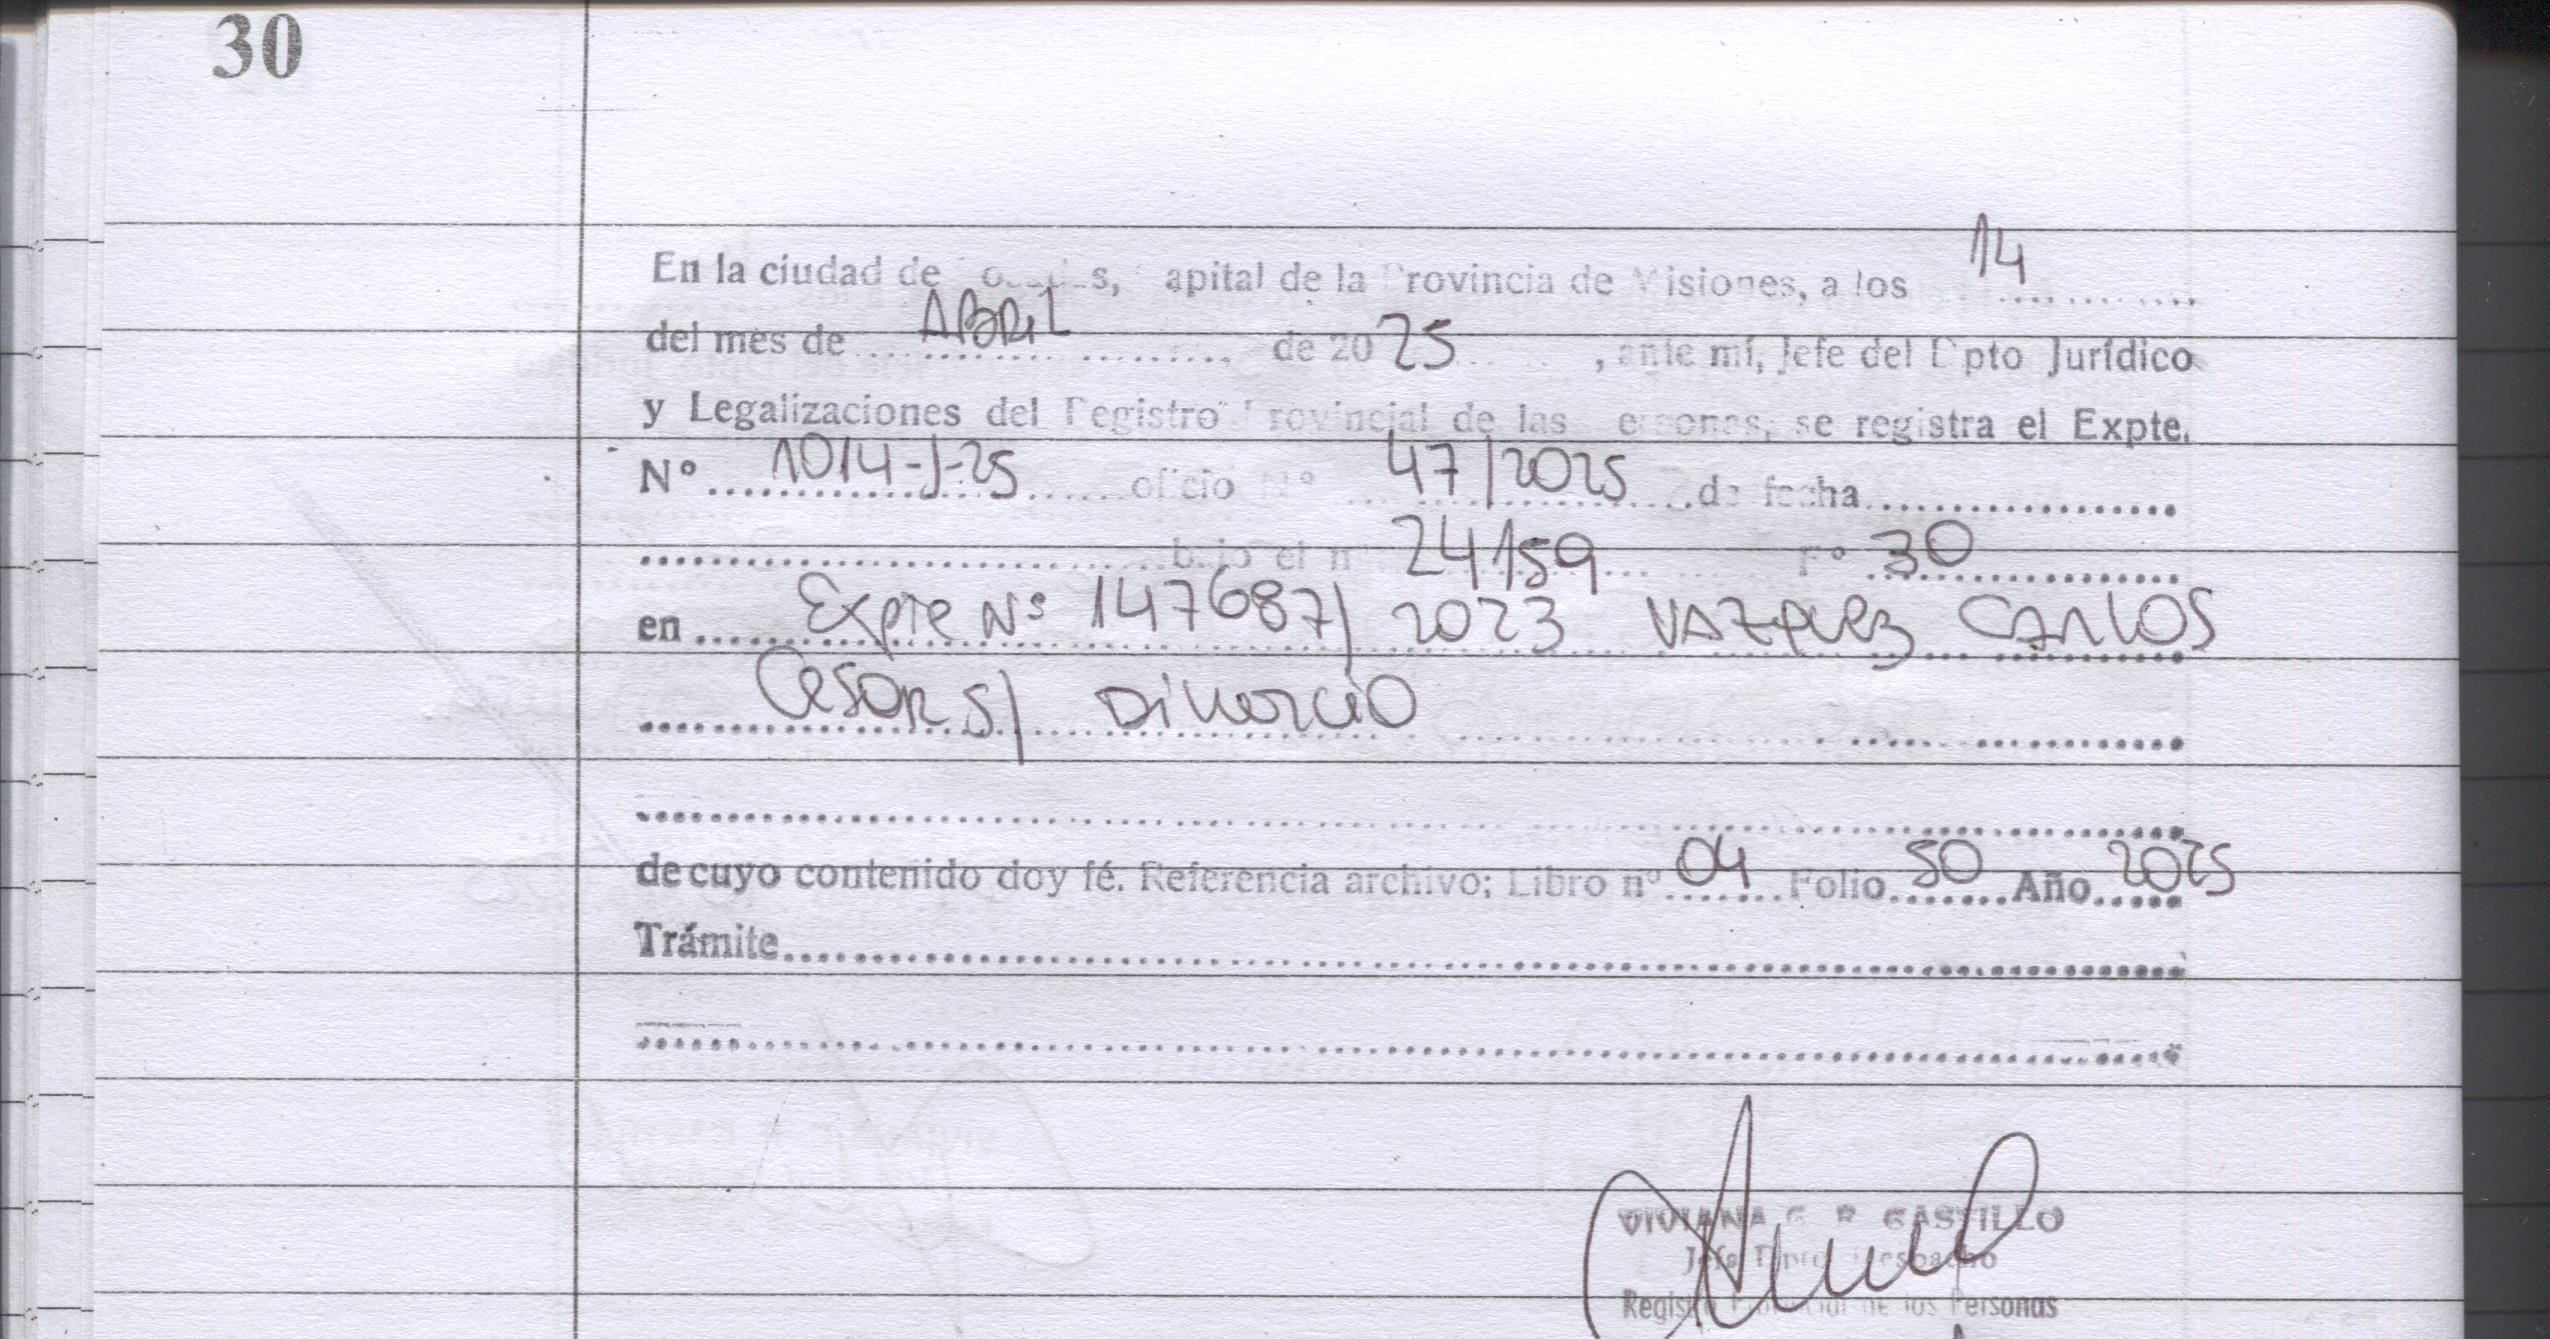 30
En la ciudad de Posadas, Capital de la Provincia de Misiones, a los 14
del mes de ABRIL de 2025, ante mí, Jefe del Dpto Jurídico
y Legalizaciones del Registro Provincial de las Personas, se registra el Expte.
Nº 1014-J-25 oficio Nº 47/2025 de fecha
bajo el n 24159 Fº 30
en Expte Nº 147687/2023 VAZQUEZ CARLOS
CESAR S/ DIVORCIO
de cuyo contenido doy fé. Referencia archivo; Libro nº 04 Folio 50 Año 2025
Trámite
VIVIANA G. R. CASTILLO
Jefa Dpto. Despacho
Registro Provincial de las Personas